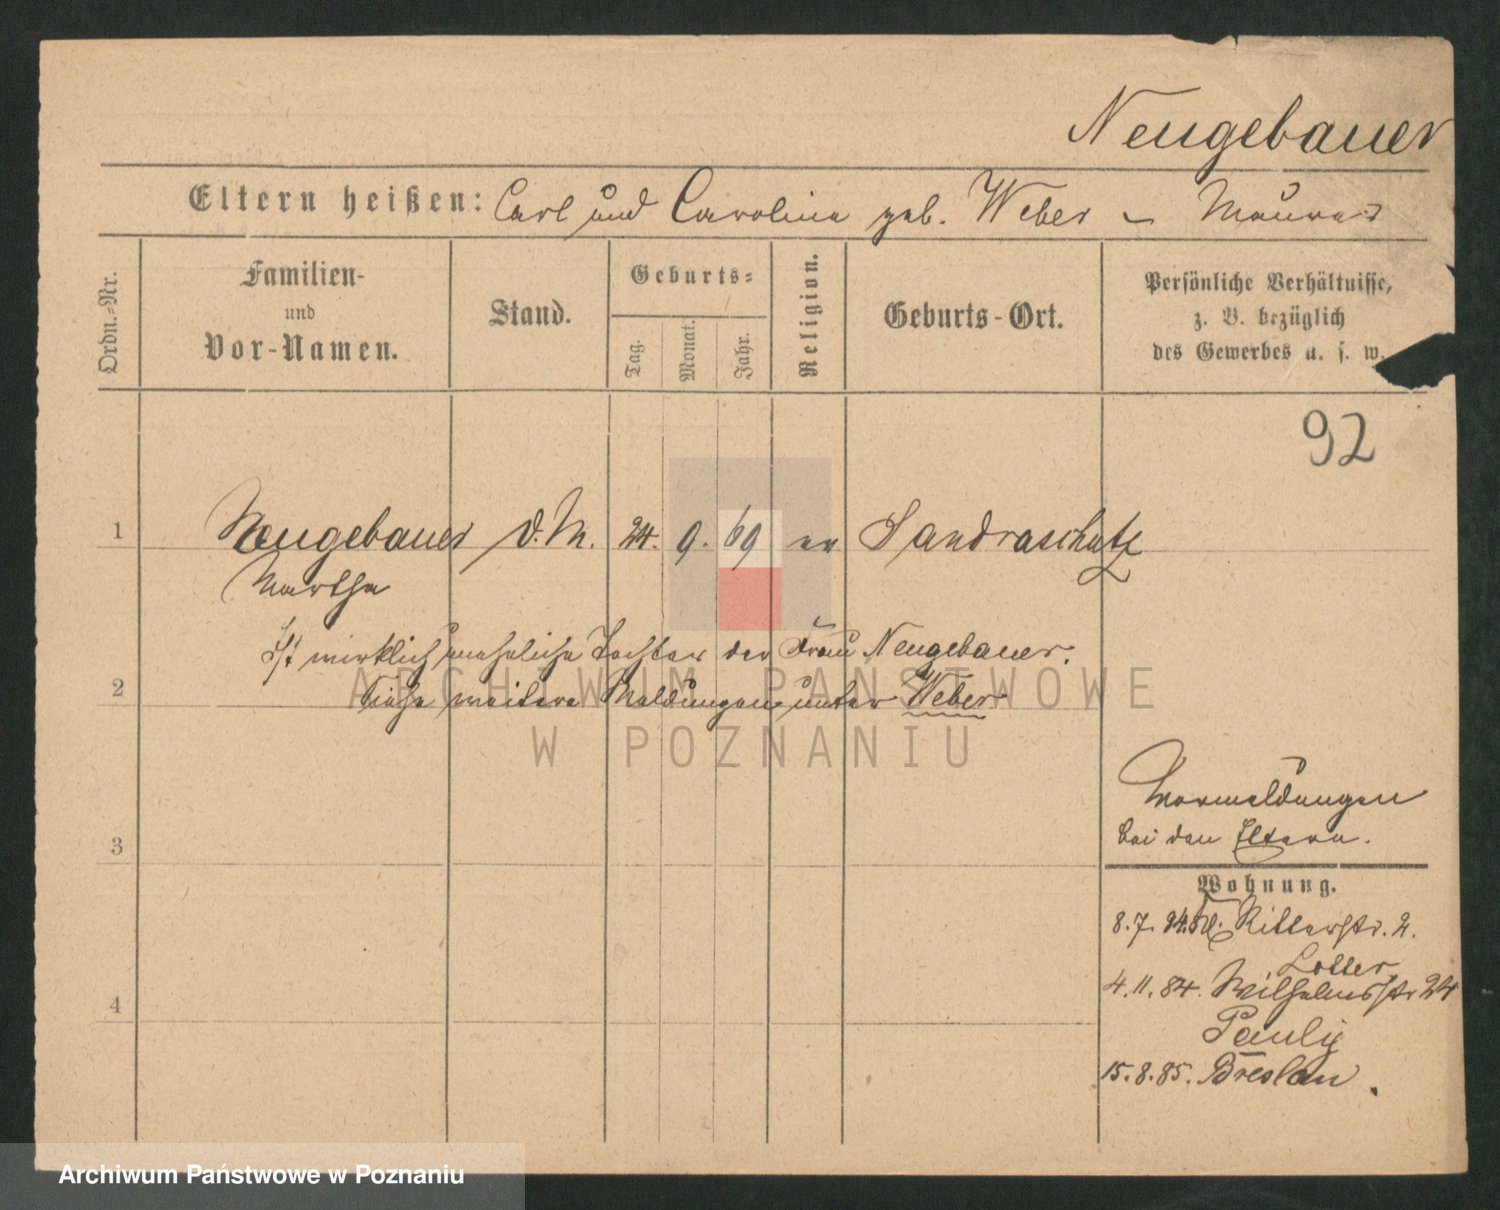 Neugebauer
Eltern heißen: Carl und Caroline geb. Weber – Maurer
Ordn.-Nr.
Familien-
und
Vor-Namen.
Stand.
Geburts-
Tag.
Monat.
Jahr.
Religion.
Geburts-Ort.
Persönliche Verhältnisse,
z. B. bezüglich
des Gewerbes u. s. w.
92
1 Neugebauer D.M. 24. 9. 69 ev Sandraschütz
Martha
Ist wirklich uneheliche Tochter der Frau Neugebauer.
2 Siehe weitere Meldungen unter Weber
ARCHIWUM PAŃSTWOWE
W POZNANIU
Vormeldungen
bei den Eltern.
3
Wohnung.
8.7.84. Ritterstr. 2.
Lotter
4.11.84. Wilhelmsstr 24
4
Pauly
15.8.85. Breslau.
Archiwum Państwowe w Poznaniu